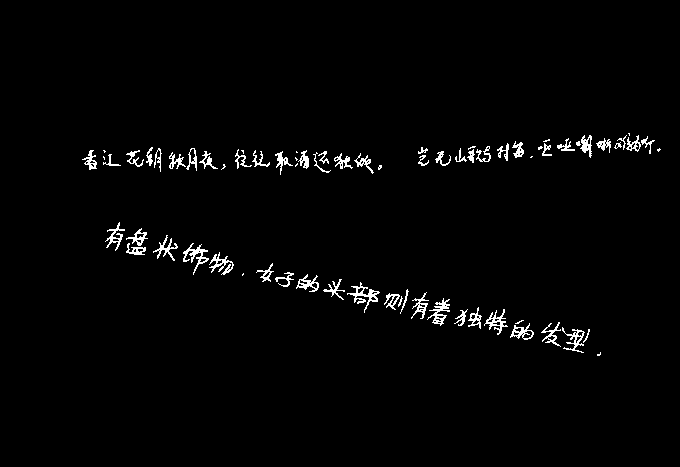 春江花朝秋月夜，往往取酒还独倾。 岂无山歌与村笛，呕哑嘲哳难为听。
有盘状饰物，女子的头部则有着独特的发型，